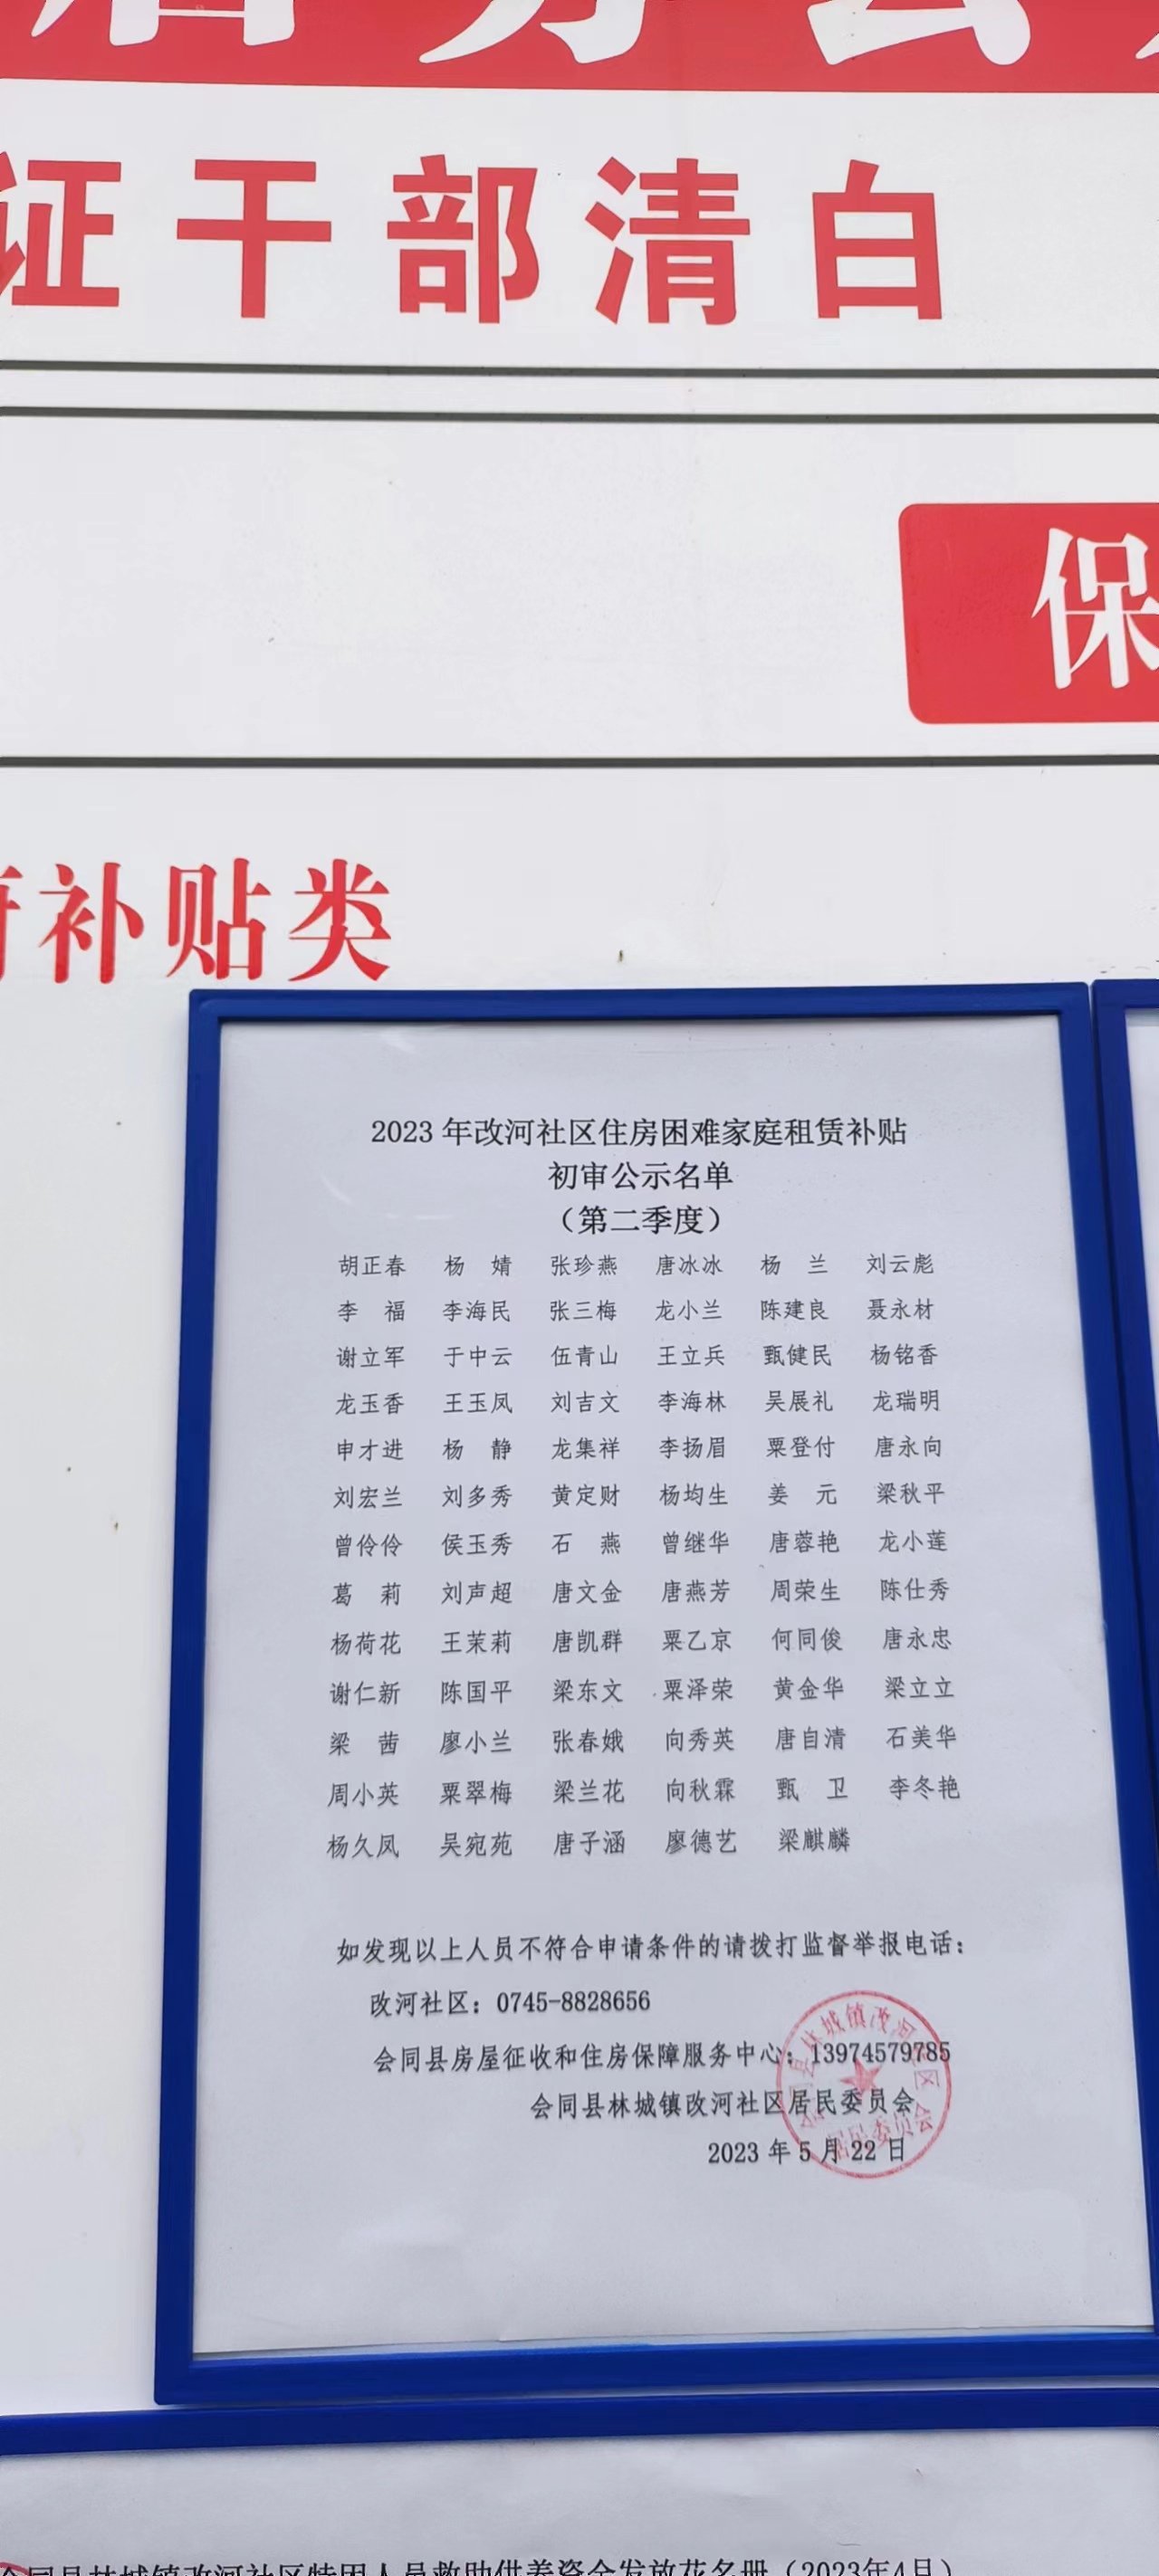 证干部清白
保
补贴类
2023年改河社区住房困难家庭租赁补贴
初审公示名单
（第二季度）
胡正春 杨 婧 张珍燕 唐冰冰 杨 兰 刘云彪
李 福 李海民 张三梅 龙小兰 陈建良 聂永材
谢立军 于中云 伍青山 王立兵 甄健民 杨铭香
龙玉香 王玉凤 刘吉文 李海林 吴展礼 龙瑞明
申才进 杨 静 龙集祥 李扬眉 粟登付 唐永向
刘宏兰 刘多秀 黄定财 杨均生 姜 元 梁秋平
曾伶伶 侯玉秀 石 燕 曾继华 唐蓉艳 龙小莲
葛 莉 刘声超 唐文金 唐燕芳 周荣生 陈仕秀
杨荷花 王茉莉 唐凯群 粟乙京 何同俊 唐永忠
谢仁新 陈国平 梁东文 粟泽荣 黄金华 梁立立
梁 茜 廖小兰 张春娥 向秀英 唐自清 石美华
周小英 粟翠梅 梁兰花 向秋霖 甄 卫 李冬艳
杨久凤 吴宛苑 唐子涵 廖德艺 梁麒麟
如发现以上人员不符合申请条件的请拨打监督举报电话：
改河社区：0745-8828656
会同县房屋征收和住房保障服务中心：13974579785
会同县林城镇改河社区居民委员会
2023年5月22日
会同县林城镇改河社区特困人员救助供养资金发放花名册（2023年4月）